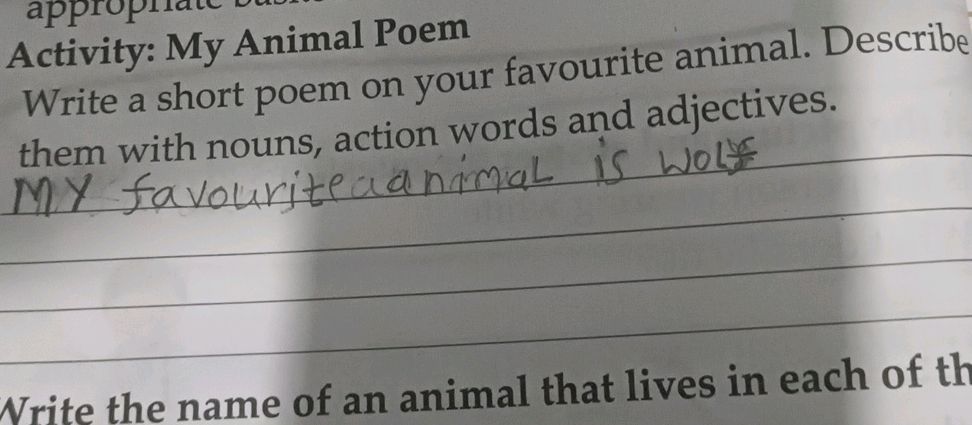 appropriate
Activity: My Animal Poem
Write a short poem on your favourite animal. Describe
them with nouns, action words and adjectives.
MY favouriteaanimaL is WOLf
Write the name of an animal that lives in each of th